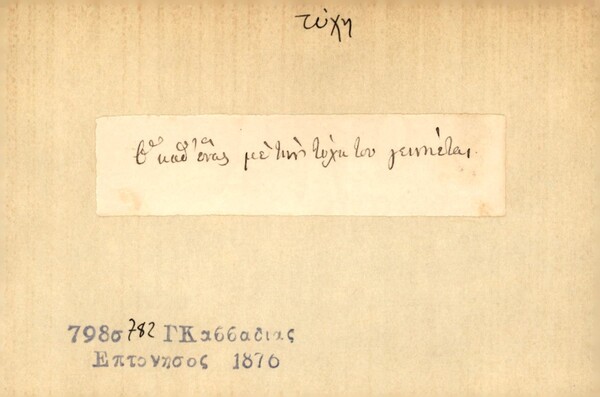 τύχη
Ὁ καθ' ἕνας μὲ τὴν τύχη του γεννιέται.
798σ 782 ΓΚασσαδιας
Επτονησος 1876